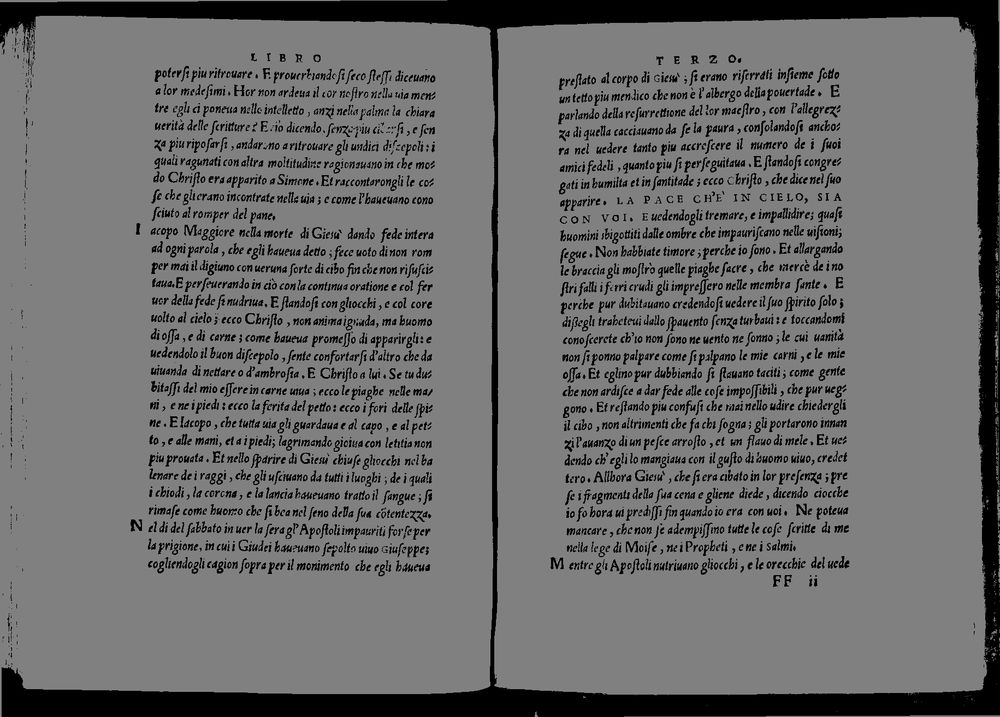 LIBRO
potersi piu ritrouare. E prouerbiandosi seco stessi diceuano
a lor medesimi. Hor non ardeua il cor nostro nella uia men=
tre egli ci poneua nello intelletto, anzi nella palma la chiara
uerità delle scritture? E cio dicendo, senza piu cibarsi, e sen
za piu riposarsi, andarono a ritrouare gli undici discepoli: i
quali ragunati con altra moltitudine ragionauano in che mo=
do Christo era apparito a Simone. Et raccontarongli le co=
se che gli erano incontrate nella uia; e come l'haueuano cono
sciuto al romper del pane.
Iacopo Maggiore nella morte di Giesù dando fede intera
ad ogni parola, che egli haueua detto; fece uoto di non rom
per mai il digiuno con ueruna sorte di cibo fin che non risusci=
taua. E perseuerando in ciò con la continua oratione e col fer
uor della fede si nudriua. E standosi con gliocchi, e col core
uolto al cielo; ecco Christo, non anima ignuda, ma huomo
di ossa, e di carne; come haueua promesso di apparirgli: e
uedendolo il buon discepolo, sente confortarsi d'altro che da
uiuanda di nettare o d'ambrosia. E Christo a lui. Se tu du=
bitassi del mio essere in carne uiua; ecco le piaghe nelle ma=
ni, e ne i piedi: ecco la ferita del petto: ecco i fori delle spi=
ne. E Iacopo, che tutta uia gli guardaua e al capo, e al pet=
to, e alle mani, et a i piedi; lagrimando gioiua con letitia non
piu prouata. Et nello sparire di Giesù chiuse gliocchi nel ba
lenare de i raggi, che gli usciuano da tutti i luoghi; de i quali
i chiodi, la corona, e la lancia haueuano tratto il sangue; si
rimase come huomo che si bea nel seno della sua cōtentezza.
Nel di del sabbato in uer la sera gl'Apostoli impauriti forse per
la prigione, in cui i Giudei haueuano sepolto uiuo Giuseppe;
cogliendogli cagion sopra per il monimento che egli haueua
TERZO.
prestato al corpo di Giesù; si erano riserrati insieme sotto
un tetto piu mendico che non è l'albergo della pouertade. E
parlando della resurrettione del lor maestro, con l'allegrez=
za di quella cacciauano da se la paura, consolandosi ancho=
ra nel uedere tanto piu accrescere il numero de i suoi
amici fedeli, quanto piu si perseguitaua. E standosi congre=
gati in humilta et in santitade; ecco Christo, che dice nel suo
apparire. LA PACE CH'E' IN CIELO, SIA
CON VOI. E uedendogli tremare, e impallidire; quasi
huomini sbigottiti dalle ombre che impauriscano nelle uisioni;
segue. Non habbiate timore; perche io sono. Et allargando
le braccia gli mostrò quelle piaghe sacre, che mercè de i no
stri falli i ferri crudi gli impressero nelle membra sante. E
perche pur dubitauano credendosi uedere il suo spirito solo;
dissegli trahetcui dallo spauento senza turbarui: e toccandomi
conoscerete ch'io non sono ne uento ne sonno; le cui uanità
non si ponno palpare come si palpano le mie carni, e le mie
ossa. Et eglino pur dubbiando si stauano taciti; come gente
che non ardisce a dar fede alle cose impossibili, che pur ueg=
gono. Et restando piu confusi che mai nello udire chiedergli
il cibo, non altrimenti che fa chi sogna; gli portarono innan
zi l'auanzo di un pesce arrosto, et un flauo di mele. Et ue=
dendo ch'egli lo mangiaua con il gusto di huomo uiuo, credet
tero. Allhora Giesù, che si era cibato in lor presenza; pre
se i fragmenti della sua cena e gliene diede, dicendo ciocche
io fo hora ui predissi fin quando io era con uoi. Ne poteua
mancare, che non se adempissino tutte le cose scritte di me
nella lege di Moise, ne i Propheti, e ne i Salmi.
Mentre gli Apostoli nutriuano gliocchi, e le orecchie del uede
FF ii